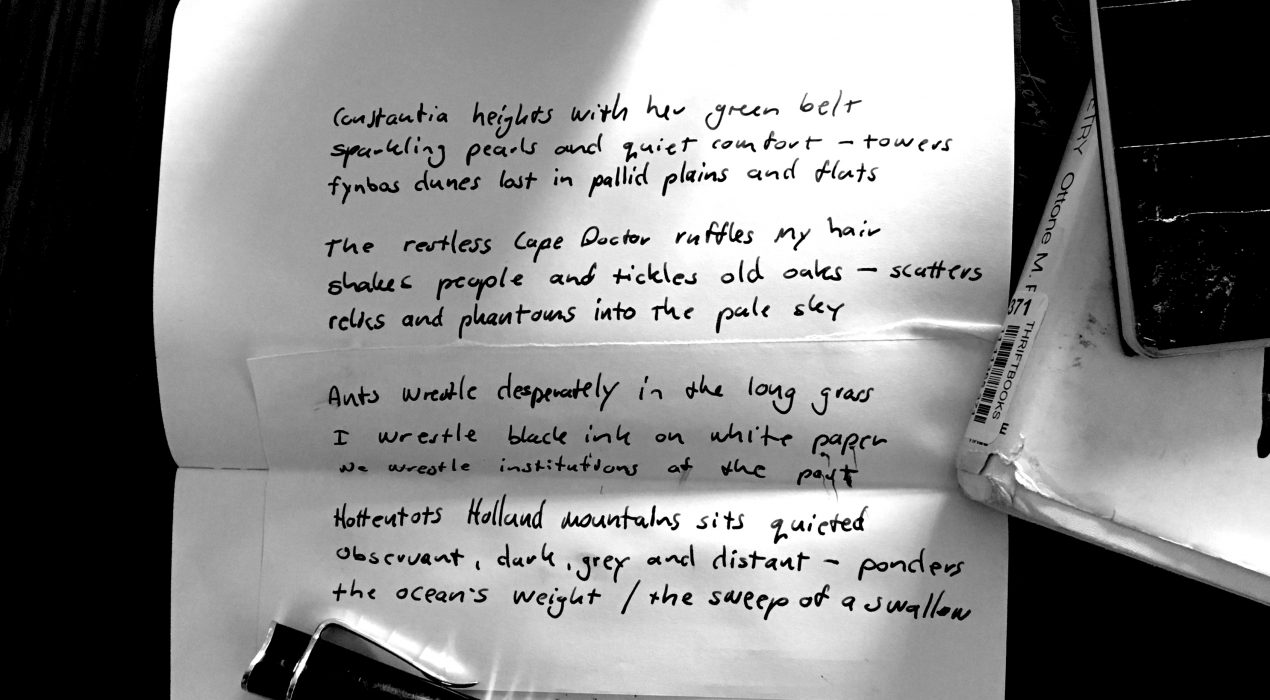 Constantia heights with her green belt
sparkling pearls and quiet comfort – towers
fynbos dunes lost in pallid plains and flats
The restless Cape Doctor ruffles my hair
shakes people and tickles old oaks – scatters
relics and phantoms into the pale sky
Ants wrestle desperately in the long grass
I wrestle black ink on white paper
We wrestle institutions of the past
Hottentots Holland mountains sits quieted
observant, dark, grey and distant – ponders
the ocean's weight / the sweep of a swallow
ETRY Ottone M. F
371
THRIFTBOOKS
E